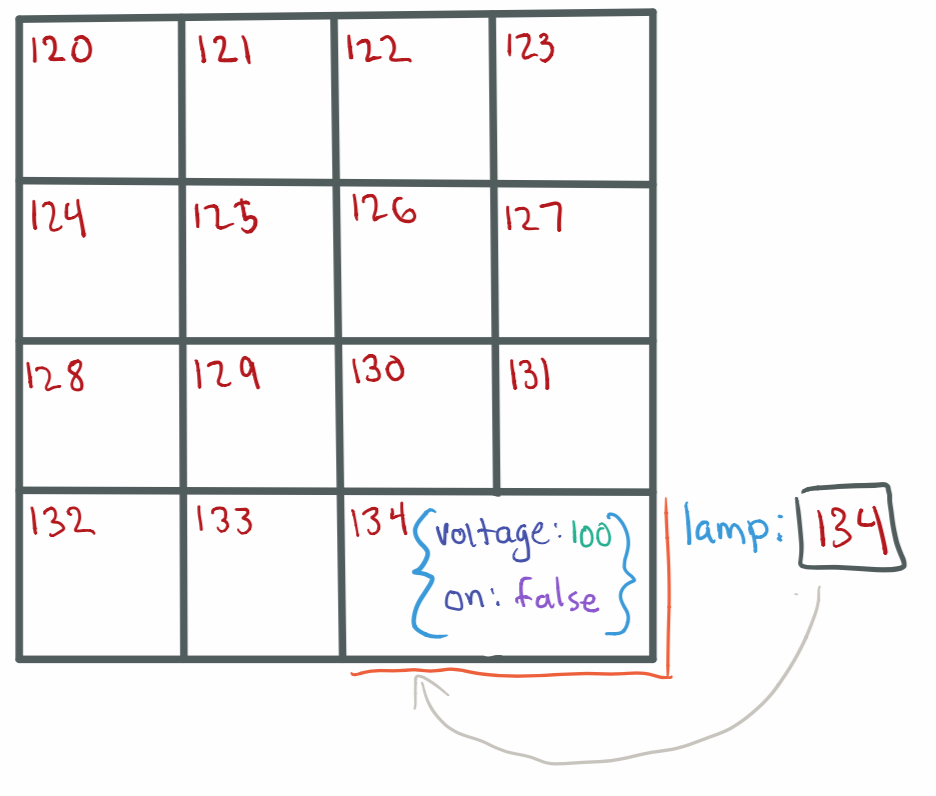 120 121 122 123
124 125 126 127
128 129 130 131
132 133 134 { voltage: 100
on: false }
lamp: 134